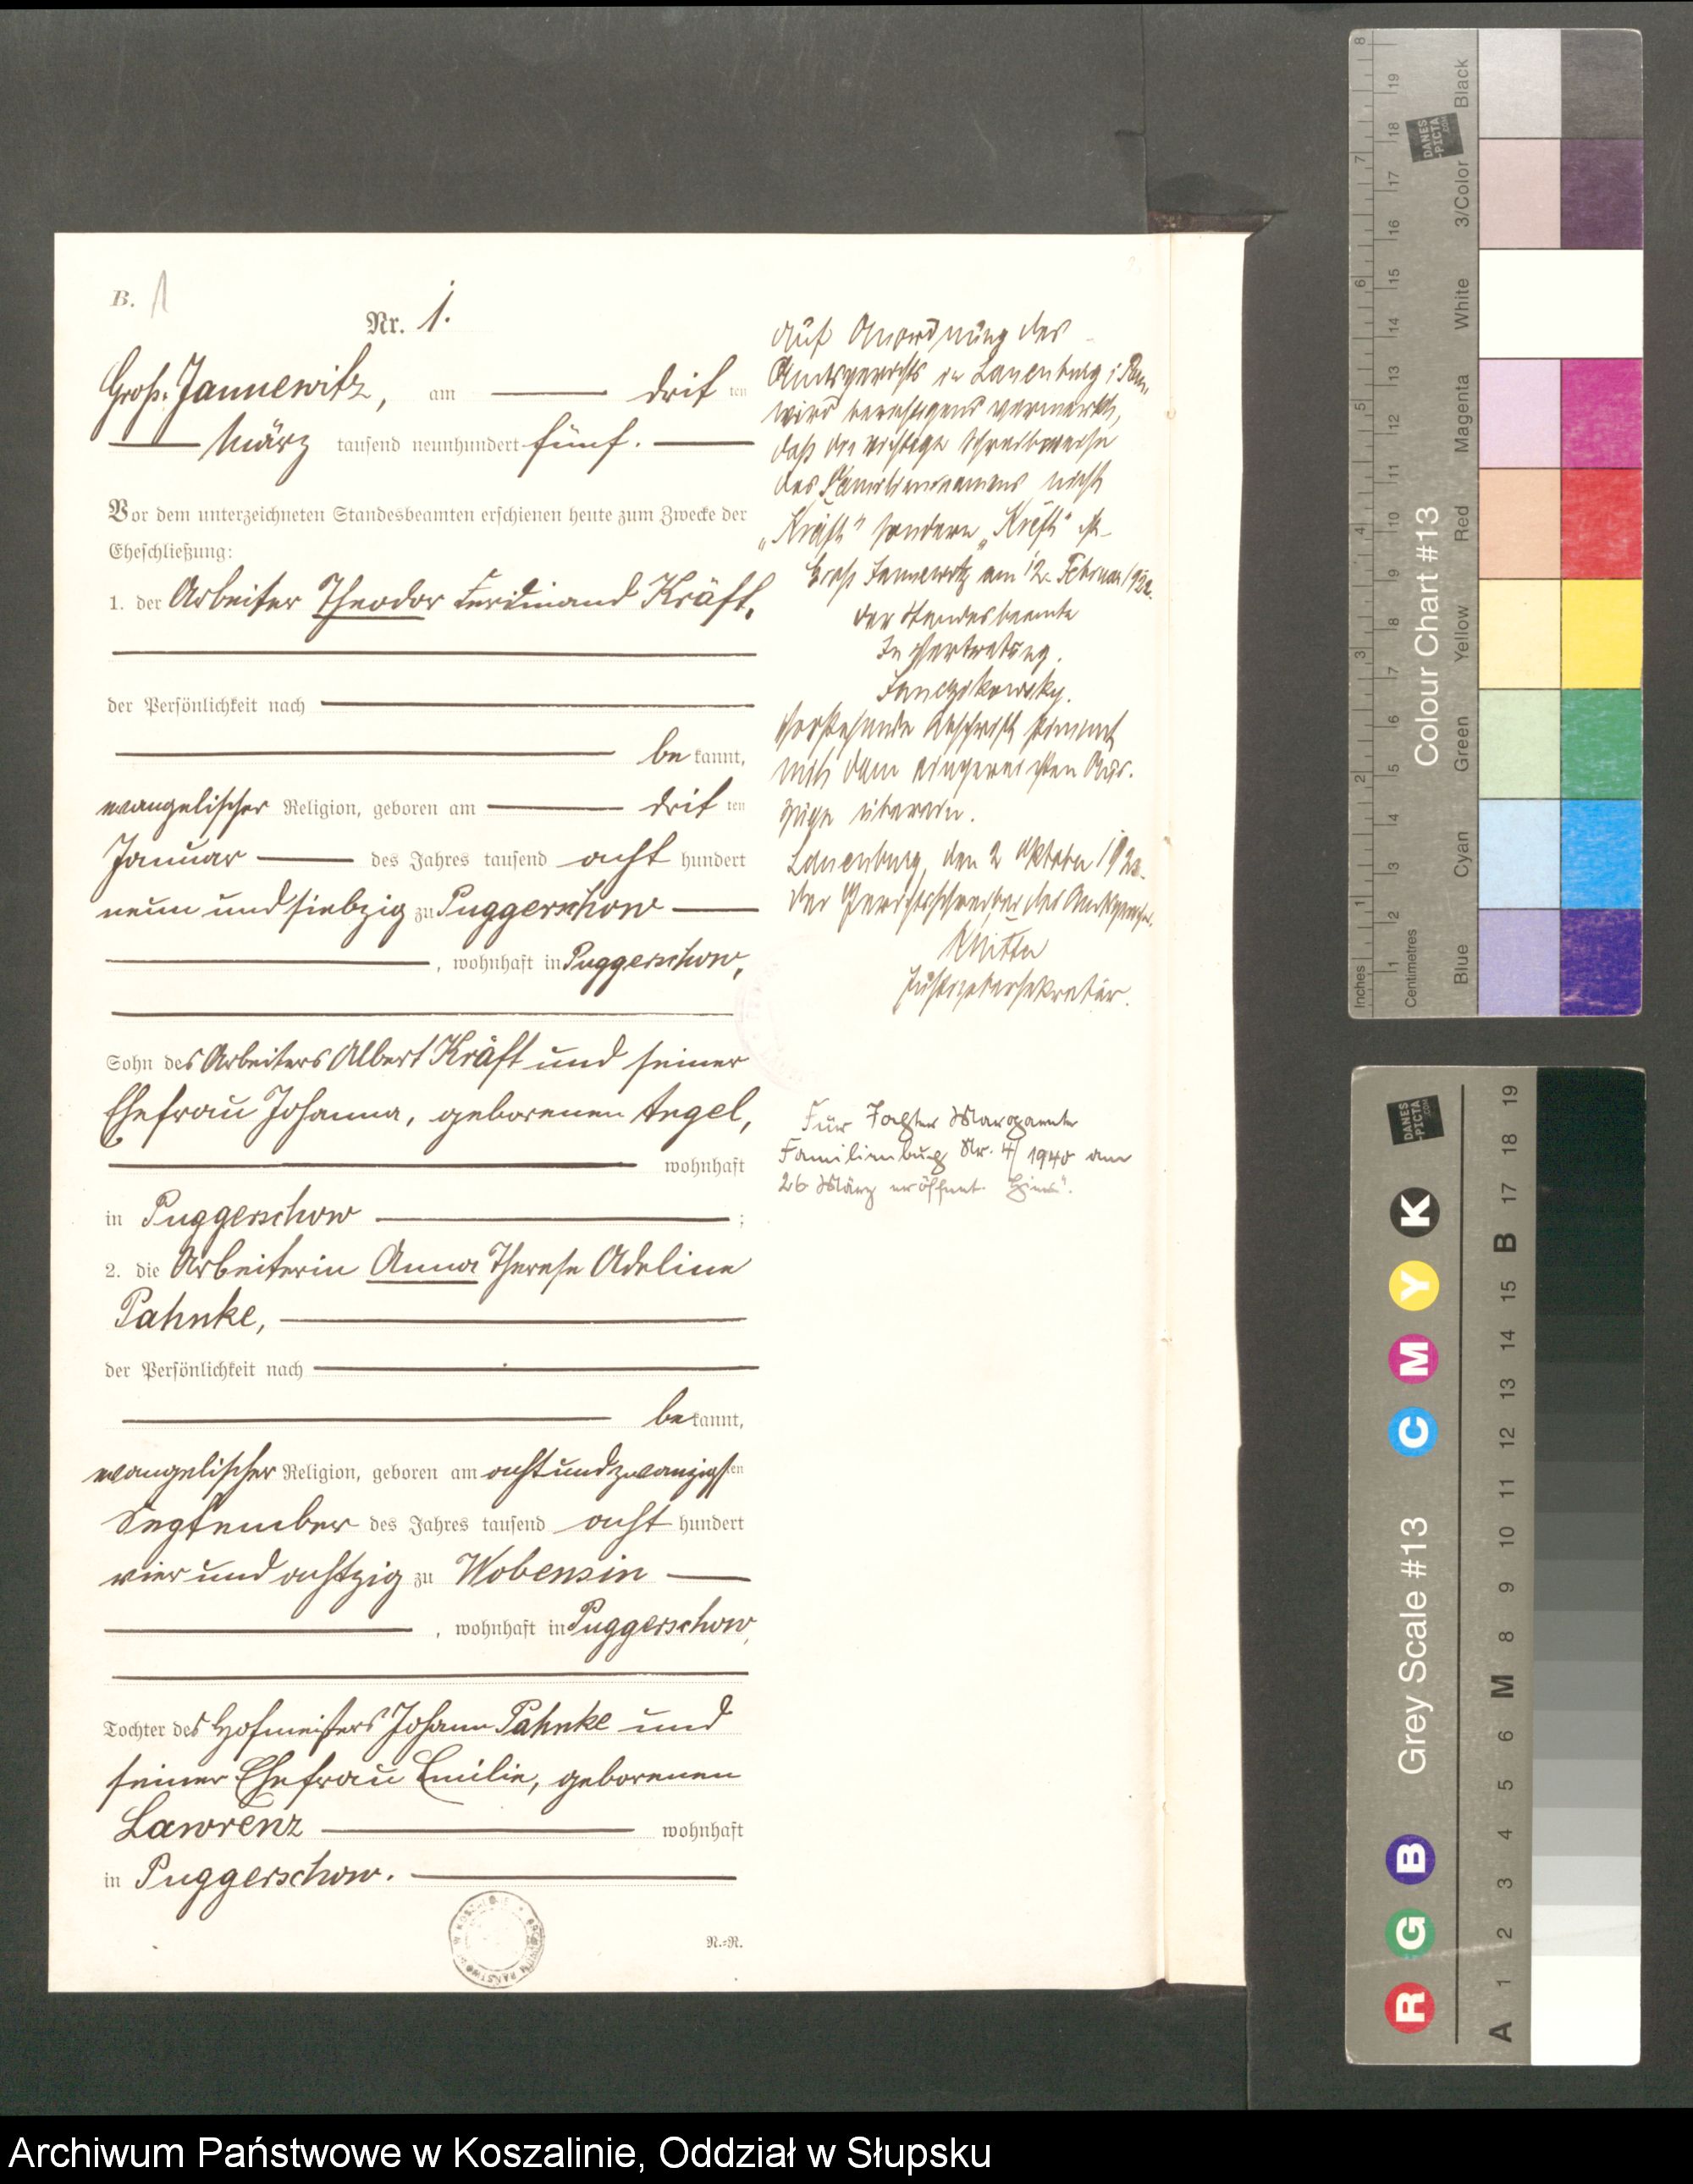 B. 1
Nr. 1.
Groß-Jannewitz, am dritten
März tausend neunhundert fünf.
Vor dem unterzeichneten Standesbeamten erschienen heute zum Zwecke der
Eheschließung:
1. der Arbeiter Theodor Ferdinand Kräft,
der Persönlichkeit nach
bekannt,
evangelischer Religion, geboren am dritten
Januar des Jahres tausend acht hundert
neun und siebzig zu Puggerschow
, wohnhaft in Puggerschow,
Sohn des Arbeiters Albert Kräft und seiner
Ehefrau Johanna, geborenen
wohnhaft
in Puggerschow ;
2. die Arbeiterin Anna Therese Adeline
Pahnke,
der Persönlichkeit nach
bekannt,
evangelischer Religion, geboren am acht und zwanzigsten
September des Jahres tausend acht hundert
vier und achtzig zu Wobensin
, wohnhaft in Puggerschow,
Tochter des Hofmeisters Johann Pahnke und
seiner Ehefrau Emilie, geborenen
Lawrenz wohnhaft
in Puggerschow.
N.=N.
Auf Anordnung des
Amtsgerichts in Lauenburg i. Pom.
wird berichtigend vermerkt,
daß die richtige Schreibweise
des Familiennamens nicht
„Kräft" sondern „Kreft" ist.
Groß Jannewitz am 12. Februar
Der Standesbeamte
In Vertretung.
Vorstehende Abschrift stimmt
mit dem eingereichten Aus-
zuge überein.
Lauenburg, den 2 Oktober
Der Gerichtsschreiber des Amtsgerichts.
Justizobersekretär.
Für Tochter Margarete
Familienbuch Nr. 4/1940 am
26 März eröffnet.
Inches
Centimetres
Colour Chart #13
Blue Cyan Green Yellow Red Magenta White 3/Color Black
DANES
-PICTA
.COM
Grey Scale #13
R G B C M Y K
A 1 2 3 4 5 6 M 8 9 10 11 12 13 14 15 B 17 18 19
Archiwum Państwowe w Koszalinie, Oddział w Słupsku